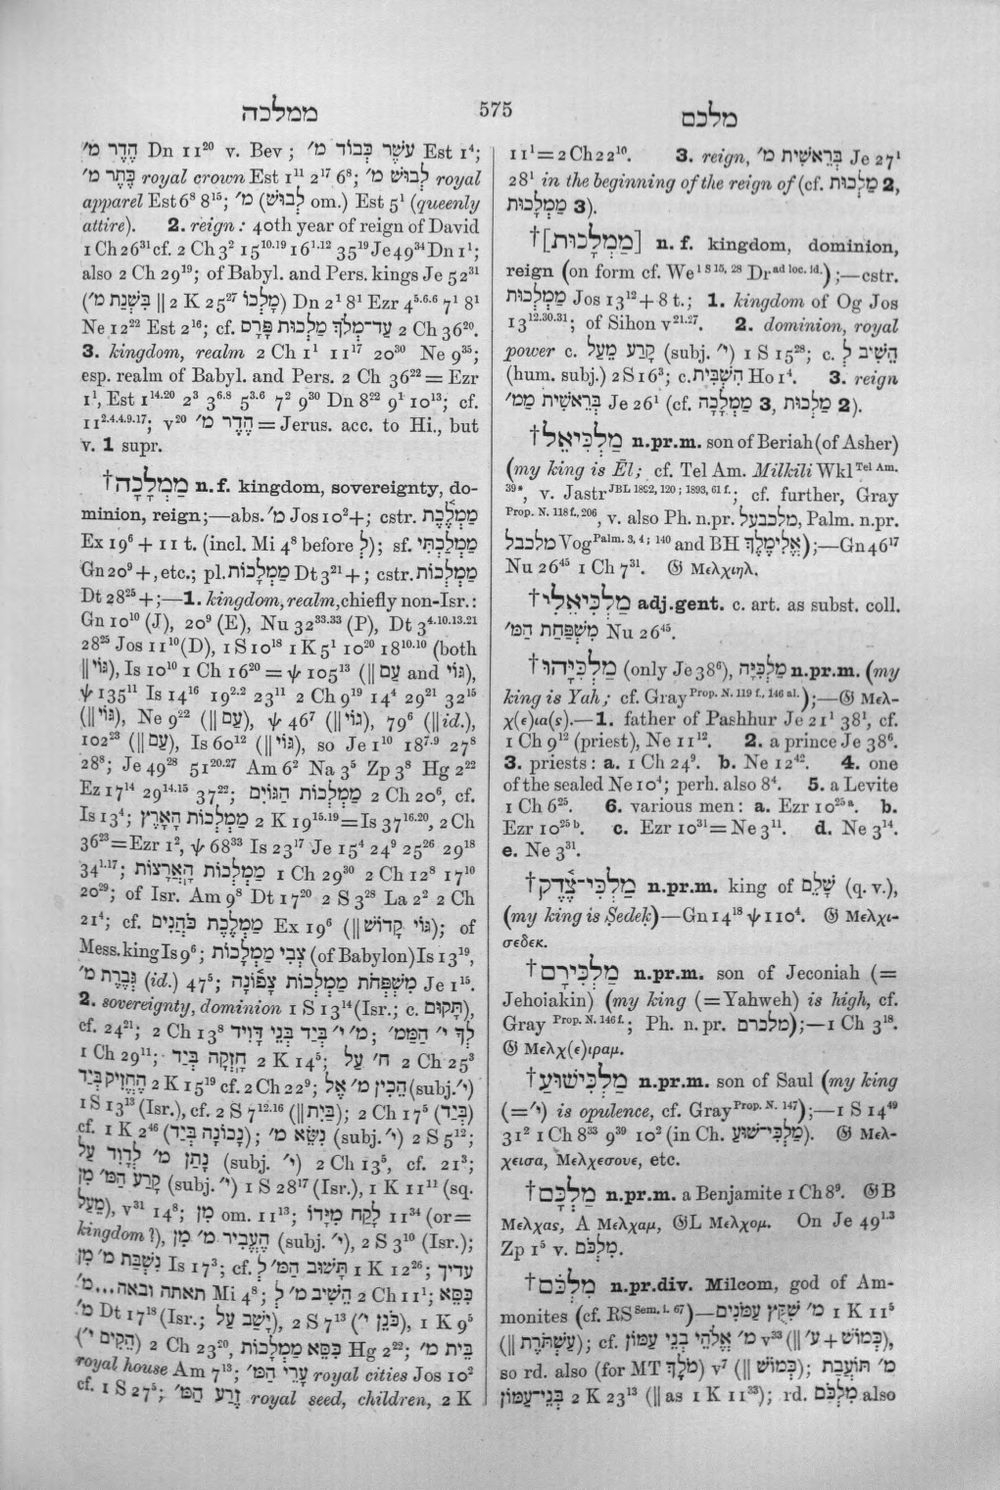 ממלכה 575 מלכם
הֲדַר מ׳ Dn 11²⁰ v. Bev; עֹשֶׁר כְּבוֹד מ׳ Est 1⁴;
כֶּתֶר מ׳ royal crown Est 1¹¹ 2¹⁷ 6⁸; לְבוּשׁ מ׳ royal
apparel Est 6⁸ 8¹⁵; מ׳ (לְבוּשׁ om.) Est 5¹ (queenly
attire). 2. reign: 40th year of reign of David
1 Ch 26³¹ cf. 2 Ch 3² 15¹⁰·¹⁹ 16¹·¹² 35¹⁹ Je 49³⁴ Dn 1¹;
also 2 Ch 29¹⁹; of Babyl. and Pers. kings Je 52³¹
(בִּשְׁנַת מ׳ || 2 K 25²⁷ מָלְכוֹ) Dn 2¹ 8¹ Ezr 4⁵·⁶·⁶ 7¹ 8¹
Ne 12²² Est 2¹⁶; cf. עַד־מְלֹךְ מַלְכוּת פָּרָס 2 Ch 36²⁰.
3. kingdom, realm 2 Ch 1¹ 11¹⁷ 20³⁰ Ne 9³⁵;
esp. realm of Babyl. and Pers. 2 Ch 36²² = Ezr
1¹, Est 1¹⁴·²⁰ 2³ 3⁶·⁸ 5³·⁶ 7² 9³⁰ Dn 8²² 9¹ 10¹³; cf.
11²·⁴·⁴·⁹·¹⁷; v²⁰ הֶדֶר מ׳ = Jerus. acc. to Hi., but
v. 1 supr.
†מַמְלָכָה n.f. kingdom, sovereignty, do-
minion, reign;—abs. מ׳ Jos 10²+; cstr. מַמְלֶכֶת
Ex 19⁶ + 11 t. (incl. Mi 4⁸ before לְ); sf. מַמְלַכְתִּי
Gn 20⁹+, etc.; pl. מַמְלָכוֹת Dt 3²¹+; cstr. מַמְלְכוֹת
Dt 28²⁵+;—1. kingdom, realm, chiefly non-Isr.:
Gn 10¹⁰ (J), 20⁹ (E), Nu 32³³·³³ (P), Dt 3⁴·¹⁰·¹³·²¹
28²⁵ Jos 11¹⁰ (D), 1 S 10¹⁸ 1 K 5¹ 10²⁰ 18¹⁰·¹⁰ (both
|| גּוֹי), Is 10¹⁰ 1 Ch 16²⁰ = ψ 105¹³ (|| עַם and גּוֹי),
ψ 135¹¹ Is 14¹⁶ 19²·² 23¹¹ 2 Ch 9¹⁹ 14⁴ 29²¹ 32¹⁵
(|| גּוֹי), Ne 9²² (|| עַם), ψ 46⁷ (|| גּוֹי), 79⁶ (|| id.),
102²³ (|| עַם), Is 60¹² (|| גּוֹי), so Je 1¹⁰ 18⁷·⁹ 27⁸
28⁸; Je 49²⁸ 51²⁰·²⁷ Am 6² Na 3⁵ Zp 3⁸ Hg 2²²
Ez 17¹⁴ 29¹⁴·¹⁵ 37²²; מַמְלְכוֹת הַגּוֹיִם 2 Ch 20⁶, cf.
Is 13⁴; מַמְלְכוֹת הָאָרֶץ 2 K 19¹⁵·¹⁹ = Is 37¹⁶·²⁰, 2 Ch
36²³ = Ezr 1², ψ 68³³ Is 23¹⁷ Je 15⁴ 24⁹ 25²⁶ 29¹⁸
34¹·¹⁷; מַמְלְכוֹת הָאֲרָצוֹת 1 Ch 29³⁰ 2 Ch 12⁸ 17¹⁰
20²⁹; of Isr. Am 9⁸ Dt 17²⁰ 2 S 3²⁸ La 2² 2 Ch
21⁴; cf. מַמְלֶכֶת כֹּהֲנִים Ex 19⁶ (|| גּוֹי קָדוֹשׁ); of
Mess. king Is 9⁶; צְבִי מַמְלָכוֹת (of Babylon) Is 13¹⁹,
גְּבֶרֶת מ׳ (id.) 47⁵; מִשְׁפְּחֹת מַמְלְכוֹת צָפוֹנָה Je 1¹⁵.
2. sovereignty, dominion 1 S 13¹⁴ (Isr.; c. תָּקוּם),
cf. 24²¹; 2 Ch 13⁸ מ׳ י׳ בְּיַד בְּנֵי דָוִיד; לְךָ י׳ הַמַּמ׳
1 Ch 29¹¹; חָזְקָה בְּיַד 2 K 14⁵; ח׳ עַל 2 Ch 25³
הֶחֱזִיק בְּיַד 2 K 15¹⁹ cf. 2 Ch 22⁹; הֵכִין מ׳ אֶל (subj. י׳)
1 S 13¹³ (Isr.), cf. 2 S 7¹²·¹⁶ (|| בַּיִת); 2 Ch 17⁵ (בְּיַד)
cf. 1 K 2⁴⁶ (נָכוֹנָה בְּיַד); נִשֵּׂא מ׳ (subj. י׳) 2 S 5¹²;
נָתַן מ׳ לְדָוִד עַל (subj. י׳) 2 Ch 13⁵, cf. 21³;
קָרַע הַמּ׳ מִן (subj. י׳) 1 S 28¹⁷ (Isr.), 1 K 11¹¹ (sq.
מֵעַל), v³¹ 14⁸; מִן om. 11¹³; לָקַח מִיָּדוֹ 11³⁴ (or =
kingdom?), הֶעֱבִיר מ׳ מִן (subj. י׳), 2 S 3¹⁰ (Isr.);
נִשְׁבַּת מ׳ מִן Is 17³; cf. תָּשׁוּב הַמּ׳ לְ 1 K 12²⁶; עדיך
תאתה ובאה...מ׳ Mi 4⁸; הֵשִׁיב מ׳ לְ 2 Ch 11¹; כִּסֵּא
מ׳ Dt 17¹⁸ (Isr.; יָשַׁב עַל), 2 S 7¹³ (כּוֹנֵן י׳), 1 K 9⁵
(הֵקִים י׳) 2 Ch 23²⁰, כִּסֵּא מַמְלָכוֹת Hg 2²²; בֵּית מ׳
royal house Am 7¹³; עָרֵי הַמּ׳ royal cities Jos 10²
cf. 1 S 27⁵; זֶרַע הַמּ׳ royal seed, children, 2 K
11¹ = 2 Ch 22¹⁰. 3. reign, בְּרֵאשִׁית מ׳ Je 27¹
28¹ in the beginning of the reign of (cf. מַלְכוּת 2,
מַמְלָכוּת 3).
†[מַמְלָכוּת] n. f. kingdom, dominion,
reign (on form cf. We¹ ˢ ¹⁵, ²⁸ Dr ᵃᵈ ˡᵒᶜ. ⁱᵈ.);—cstr.
מַמְלְכוּת Jos 13¹² + 8 t.; 1. kingdom of Og Jos
13¹²·³⁰·³¹; of Sihon v²¹·²⁷. 2. dominion, royal
power c. קָרַע מֵעַל (subj. י׳) 1 S 15²⁸; c. הֵשִׁיב לְ
(hum. subj.) 2 S 16³; c. הִשְׁבִּית Ho 1⁴. 3. reign
בְּרֵאשִׁית מַמ׳ Je 26¹ (cf. מַמְלָכָה 3, מַלְכוּת 2).
†מַלְכִּיאֵל n.pr.m. son of Beriah (of Asher)
(my king is Ēl; cf. Tel Am. Milkili Wkl ᵀᵉˡ ᴬᵐ.
³⁹*, v. Jastr ᴶᴮᴸ ¹⁸⁹², ¹²⁰; ¹⁸⁹³, ⁶¹ ᶠ.; cf. further, Gray
Prop. N. 118 f., 206, v. also Ph. n.pr. מלכבעל, Palm. n.pr.
מלכבל Vog Palm. 3, 4; 140 and BH אֱלִימֶלֶךְ);—Gn 46¹⁷
Nu 26⁴⁵ 1 Ch 7³¹. 𝔊 Μελχιηλ.
†מַלְכִּיאֵלִי adj.gent. c. art. as subst. coll.
מִשְׁפַּחַת הַמּ׳ Nu 26⁴⁵.
†מַלְכִּיָּהוּ (only Je 38⁶), מַלְכִּיָּה n.pr.m. (my
king is Yah; cf. Gray Prop. N. 119 f., 146 al.);—𝔊 Μελ-
χ(ε)ια(ς).—1. father of Pashhur Je 21¹ 38¹, cf.
1 Ch 9¹² (priest), Ne 11¹². 2. a prince Je 38⁶.
3. priests: a. 1 Ch 24⁹. b. Ne 12⁴². 4. one
of the sealed Ne 10⁴; perh. also 8⁴. 5. a Levite
1 Ch 6²⁵. 6. various men: a. Ezr 10²⁵ ᵃ. b.
Ezr 10²⁵ ᵇ. c. Ezr 10³¹ = Ne 3¹¹. d. Ne 3¹⁴.
e. Ne 3³¹.
†מַלְכִּי־צֶדֶק n.pr.m. king of שָׁלֵם (q. v.),
(my king is Ṣedeḳ)—Gn 14¹⁸ ψ 110⁴. 𝔊 Μελχι-
σεδεκ.
†מַלְכִּירָם n.pr.m. son of Jeconiah (=
Jehoiakin) (my king (= Yahweh) is high, cf.
Gray Prop. N. 146 f.; Ph. n. pr. מלכרם);—1 Ch 3¹⁸.
𝔊 Μελχ(ε)ιραμ.
†מַלְכִּישׁוּעַ n.pr.m. son of Saul (my king
(= י׳) is opulence, cf. Gray Prop. N. 147);—1 S 14⁴⁹
31² 1 Ch 8³³ 9³⁹ 10² (in Ch. מַלְכִּי־שׁוּעַ). 𝔊 Μελ-
χεισα, Μελχεσουε, etc.
†מַלְכָּם n.pr.m. a Benjamite 1 Ch 8⁹. 𝔊B
Μελχας, A Μελχαμ, 𝔊L Μελχομ. On Je 49¹·³
Zp 1⁵ v. מִלְכֹּם.
†מִלְכֹּם n.pr.div. Milcom, god of Am-
monites (cf. RS Sem. i. 67)—מ׳ שִׁקֻּץ עַמֹּנִים 1 K 11⁵
(|| עַשְׁתֹּרֶת); cf. מ׳ אֱלֹהֵי בְנֵי עַמּוֹן v³³ (|| כְּמוֹשׁ + ע׳),
so rd. also (for MT מֹלֶךְ) v⁷ (|| כְּמוֹשׁ); מ׳ תּוֹעֲבַת
בְּנֵי־עַמּוֹן 2 K 23¹³ (|| as 1 K 11³³); rd. מִלְכֹּם also